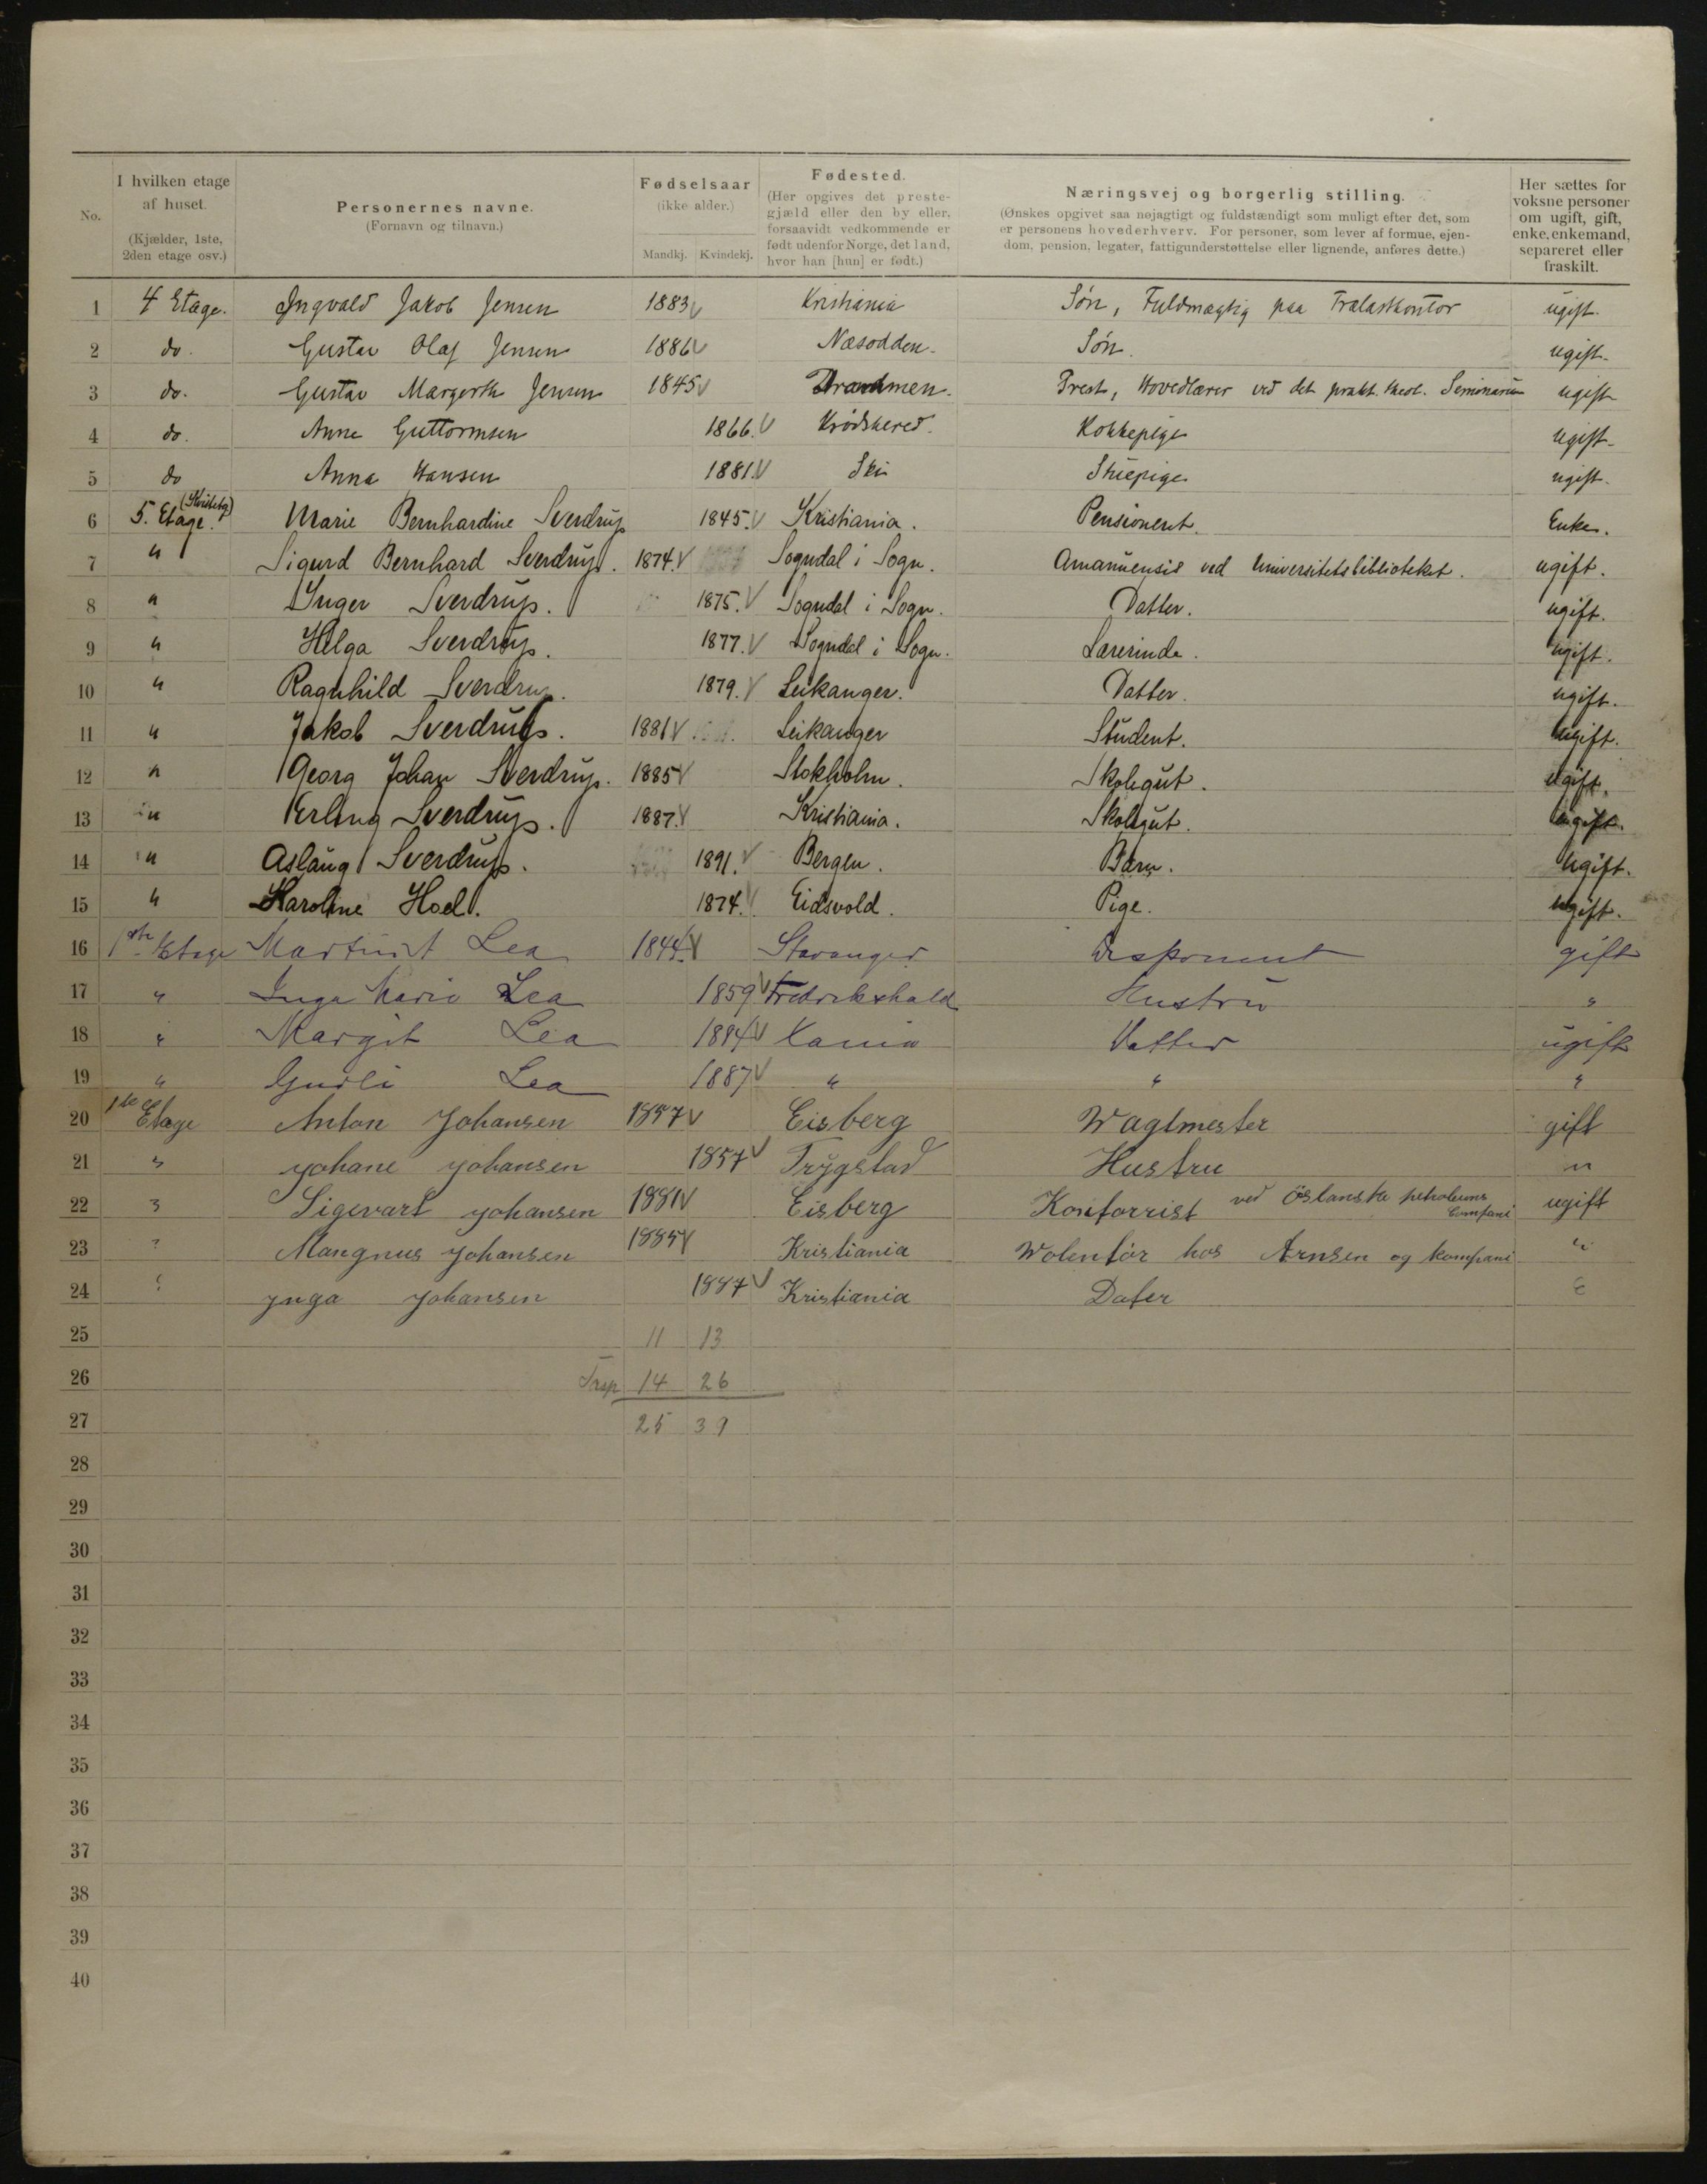 No. | I hvilken etage af huset. (Kjælder, 1ste, 2den etage osv.) | Personernes navne. (Fornavn og tilnavn.) | Fødselsaar (ikke alder.) Mandkj. Kvindekj. | Fødested. (Her opgives det prestegjæld eller den by eller, forsaavidt vedkommende er født udenfor Norge, det land, hvor han [hun] er født.) | Næringsvej og borgerlig stilling. (Ønskes opgivet saa nøjagtigt og fuldstændigt som muligt efter det, som er personens hovederhverv. For personer, som lever af formue, ejendom, pension, legater, fattigunderstøttelse eller lignende, anføres dette.) | Her sættes for voksne personer om ugift, gift, enke, enkemand, separeret eller fraskilt.
1 4 Etage. Ingvald Jakob Jensen 1883 Kristiania Søn, Fuldmægtig paa Trælastkontor ugift.
2 do. Gustav Olaf Jensen 1886 Næsodden. Søn. ugift.
3 do. Gustav Margerth Jensen 1845 Drammen. Prest, Hovedlærer ved det prakt. theol. Seminarium ugift
4 do. Anne Guttormsen 1866. Krødshered. Kokkepige ugift.
5 do Anna Hansen 1881. Ski Stuepige ugift.
6 5. Etage. Marie Bernhardine Sverdrup 1845. Kristiania. Pensionent. Enke.
7 " Sigurd Bernhard Sverdrup. 1874. Sogndal i Sogn. Amanuensis ved Universitetsbiblioteket. ugift.
8 " Inger Sverdrup. 1875. Sogndal i Sogn. Datter. ugift.
9 " Helga Sverdrup. 1877. Sogndal i Sogn. Lærerinde. ugift.
10 " Ragnhild Sverdrup. 1879. Leikanger. Datter. ugift.
11 " Jakob Sverdrup. 1881 Leikanger Student. ugift.
12 " Georg Johan Sverdrup. 1885 Stokholm. Skolegut. ugift.
13 " Erling Sverdrup. 1887. Kristiania. Skolegut. ugift.
14 " Aslaug Sverdrup. 1891. Bergen. Barn. ugift.
15 " Karoline Hoel. 1874. Eidsvold. Pige. ugift.
16 1ste Etage Martinit Lea 1844. Stavanger Disponent gift
17 " Inga Marie Lea 1859 Fredrikshald Hustru "
18 " Margit Lea 1884 Xania Datter ugift
19 " Gudli Lea 1887 " " "
20 1ste Etage Anton Johansen 1857 Eisberg Wagtmester gift
21 " Johane Johansen 1857 Trygstad Hustru "
22 " Sigevart Johansen 1881 Eisberg Kontorrist ved Östlanske petroleums Compani ugift
23 " Mangnus Johansen 1885 Kristiania Wolentör hos Arnsen og kompani "
24 " Ynga Johansen 1887 Kristiania Dater "
25 11 13
26 Trsp 14 26
27 25 39
28
29
30
31
32
33
34
35
36
37
38
39
40